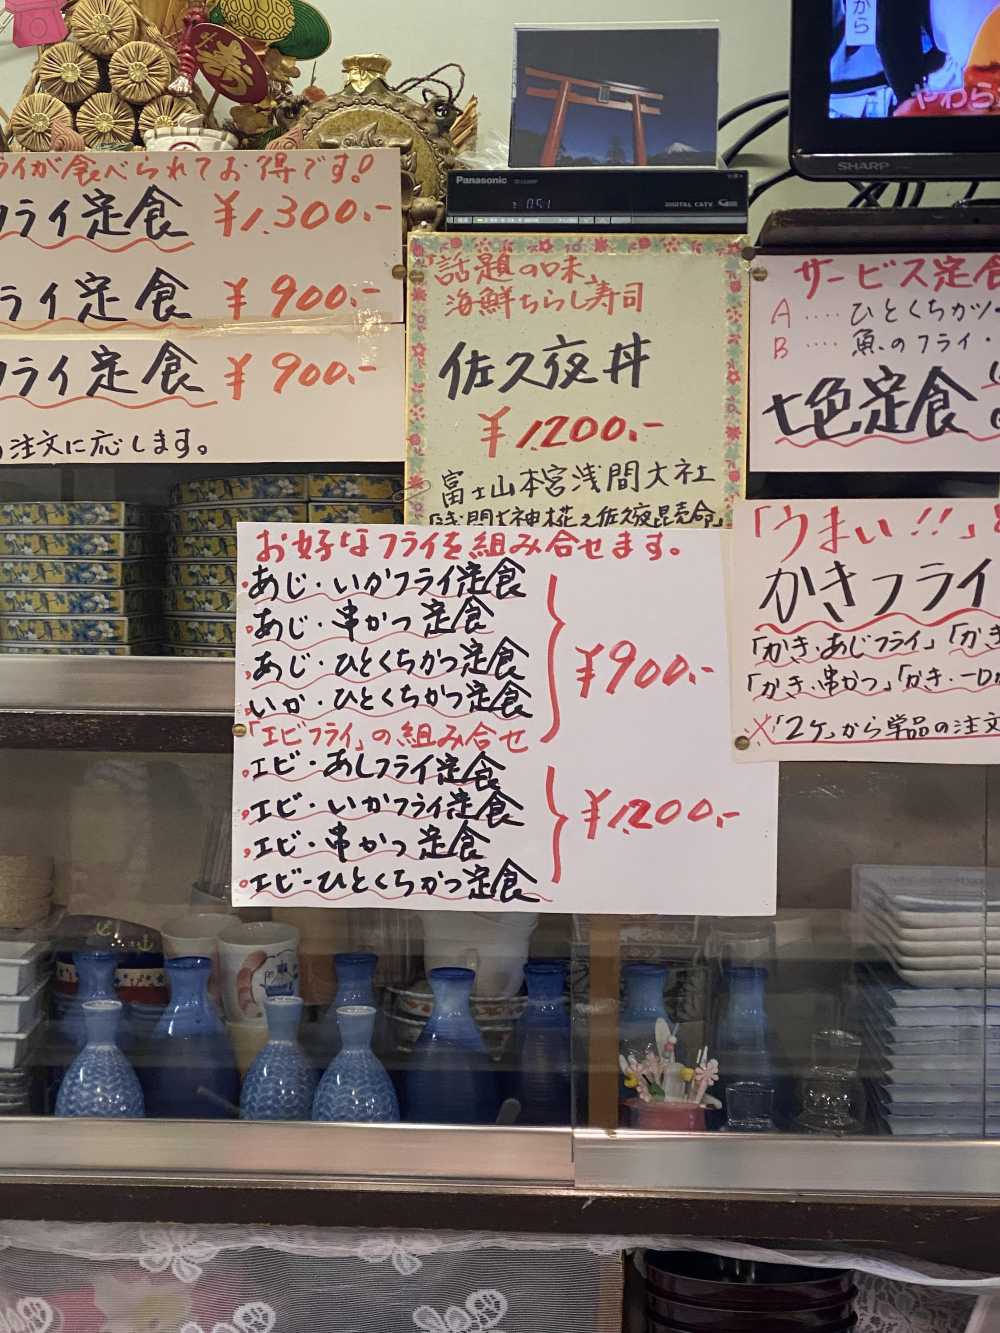 から
やわら
SHARP
寿
Panasonic
DIGITAL CATV
ライが食べられてお得です!
フライ定食 ¥1,300.-
ライ定食 ¥900.-
フライ定食 ¥900.-
注文に応じます。
「話題の味」
海鮮ちらし寿司
佐久夜丼
¥1,200.-
富士山本宮浅間大社
サービス定食
A ‥‥ ひとくちかツ・
B ‥‥ 魚のフライ・
七色定食
お好なフライを組み合せます。
・あじ・いかフライ定食
・あじ・串かつ定食
・あじ・ひとくちかつ定食
・いか・ひとくちかつ定食
¥900.-
「エビフライ」の組み合せ
・エビ・あじフライ定食
・エビ・いかフライ定食
・エビ・串かつ定食
・エビ-ひとくちかつ定食
¥1,200.-
「うまい!!」
かきフライ
「かき・あじフライ」「かき
「かき・串かつ」「かき・一口か
※「2ケ」から単品の注文